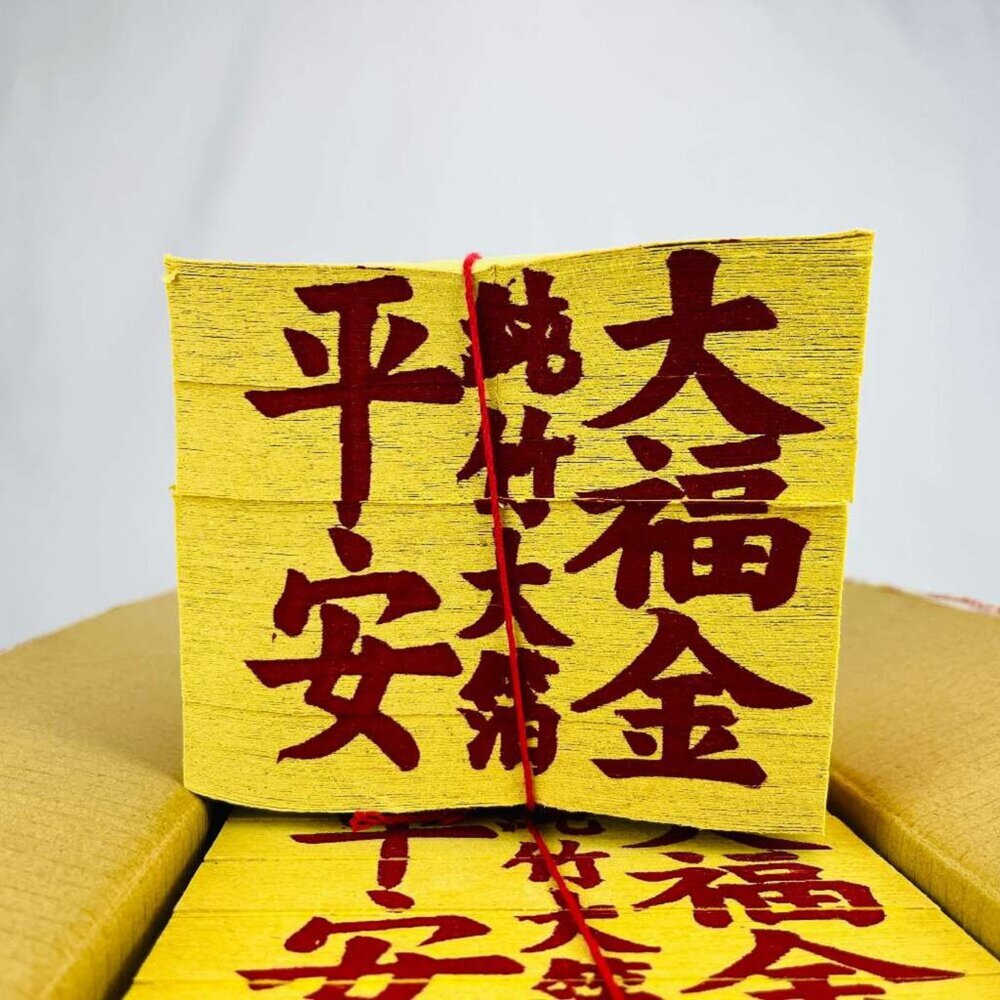 大福金
純竹大箔
平安
大福金
純竹大箔
平安